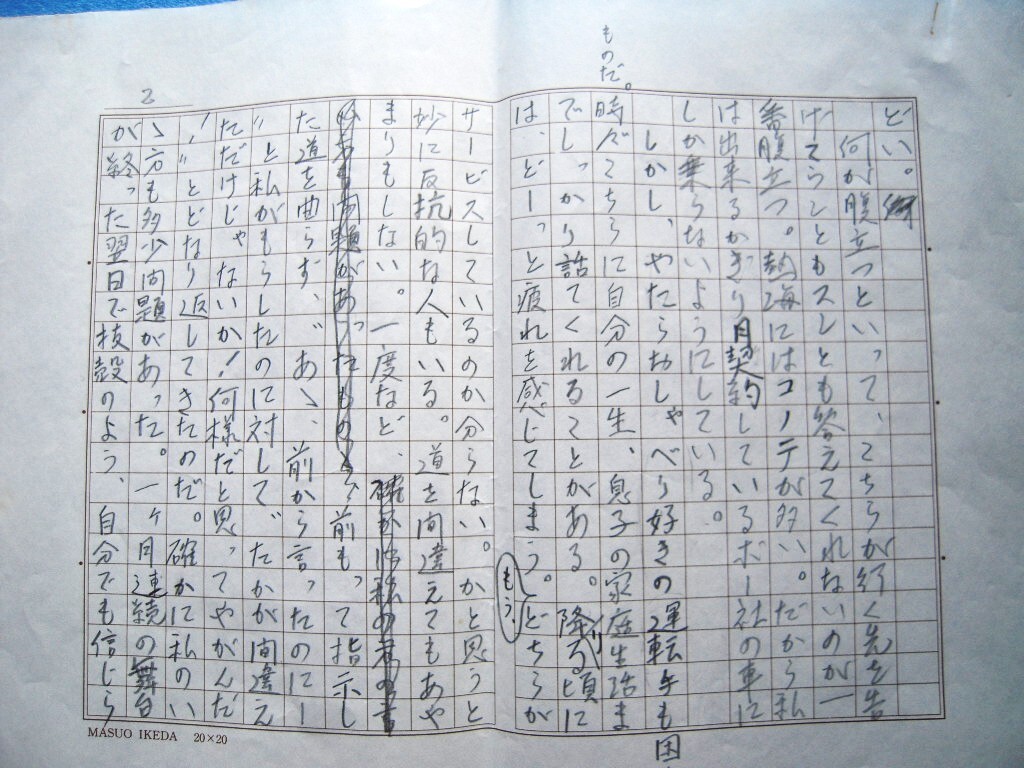 どい。
何が腹立つといって、こちらが行く先を告
げてもウンともスンとも答えてくれないのが一
番腹立つ。熱海にはコノテが多い。だから私
は出来るかぎり月契約しているボー社の車に
しか乗らないようにしている。
しかし、やたらおしゃべり好きの運転手も困
ものだ。
時々こちらに自分の一生、息子の家庭生活ま
でしっかり話てくれることがある。降りる頃に
は、どーっと疲れを感じてしまう。もう、どちらが
サービスしているのか分らない。かと思うと
妙に反抗的な人もいる。道を間違えてもあや
まりもしない。一度など、
前もって指示し
た道を曲らず、"あゝ、前から言ったのにー
"と私がもらしたのに対して"たかが間違え
ただけじゃないか!何様だと思ってやがんだ
!"とどなり返してきたのだ。確かに私のい
ゝ方も多少問題があった。一ヶ月連続の舞台
が終った翌日で抜殻のよう、自分でも信じら
2
MASUO IKEDA 20×20